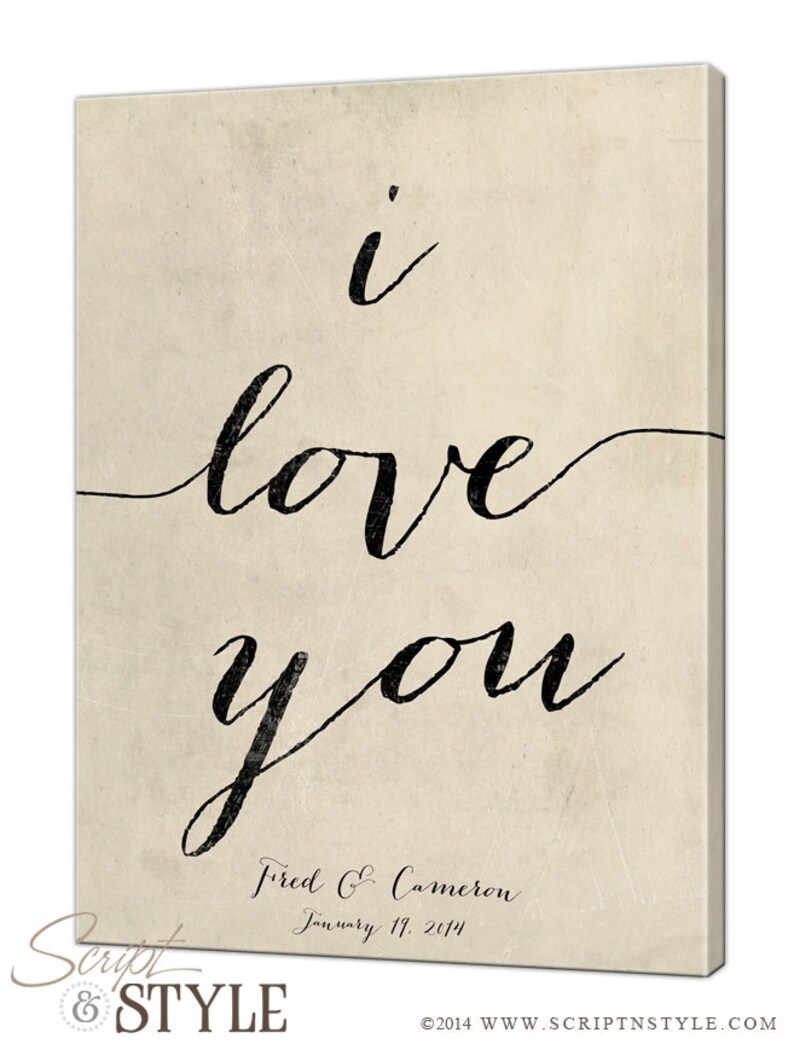 i
love
you
Fred & Cameron
January 19, 2014
Script
& STYLE
©2014 WWW.SCRIPTNSTYLE.COM